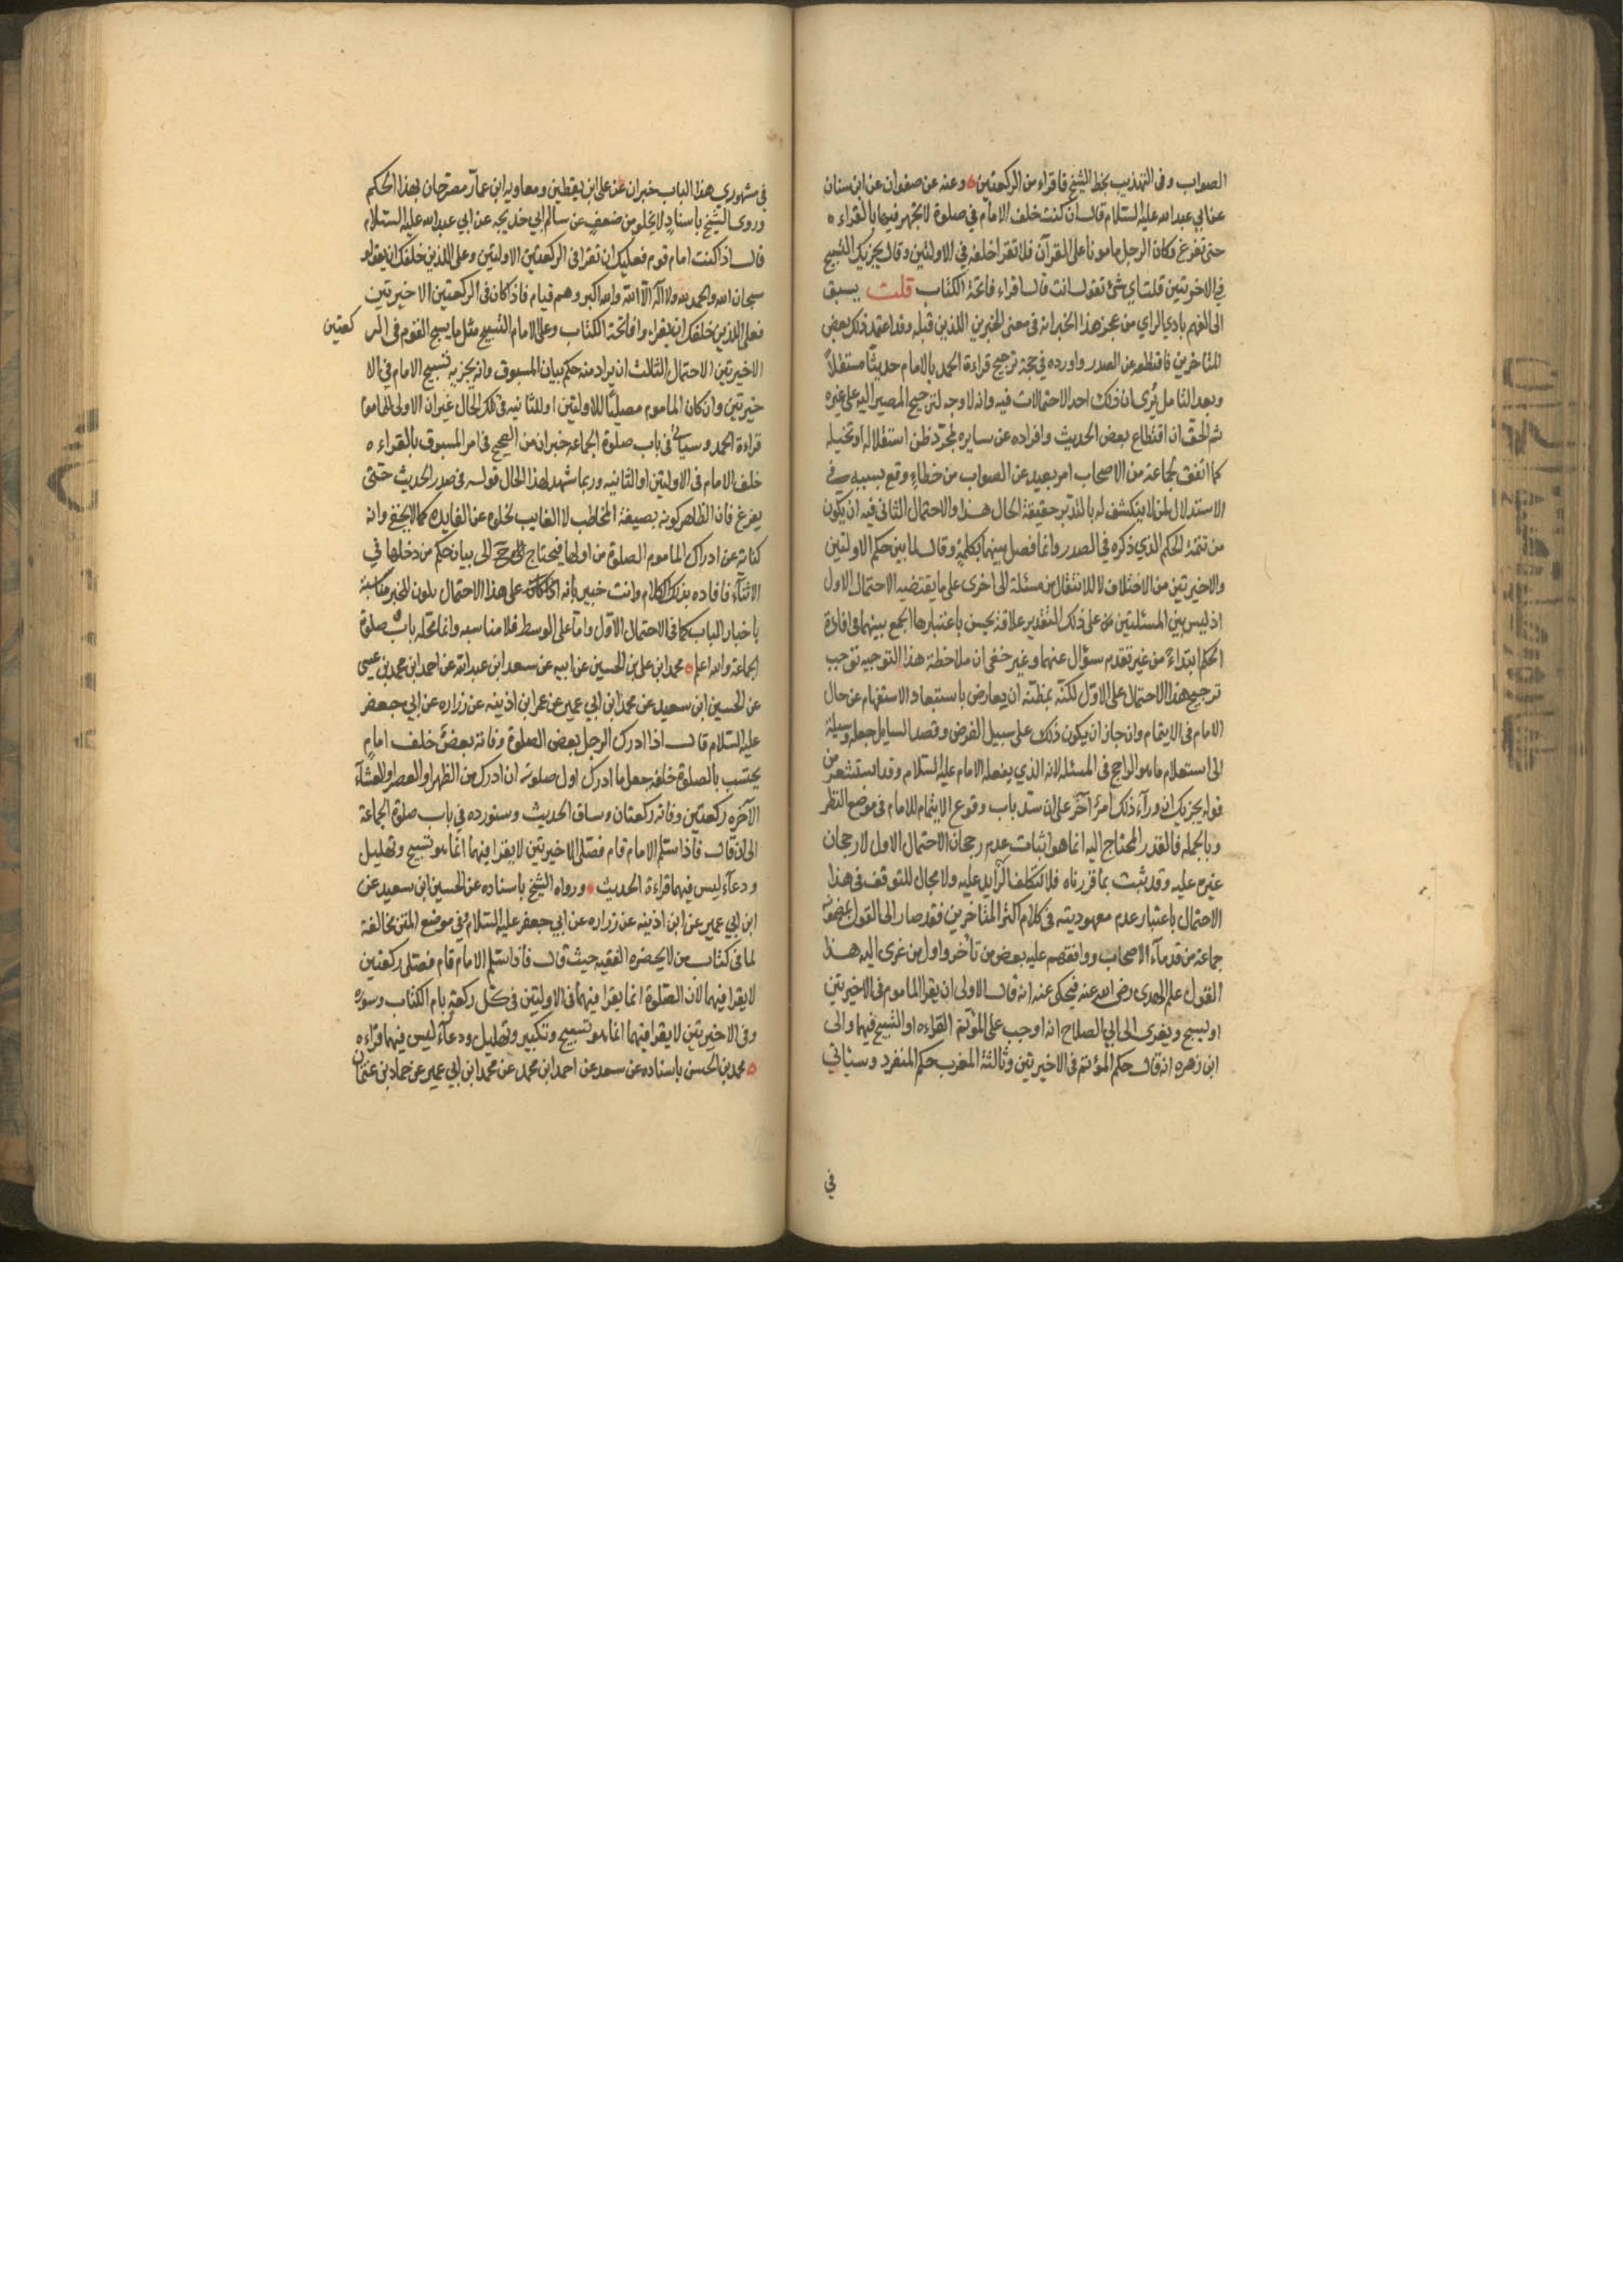 الصواب وفى التهذيب بخط الشيخ فاقراء من الركعتين ه وعنه عن صفوان عن ابن سنان
عن ابى عبد الله عليه السلام قال ان كنت خلف الامام في صلوة لا يجهر فيها بالقراءه
حتى تفرغ وكان الرجل مامونا على القرآن فلا تقرا خلفه في الاولتين وقال يجزيك التسبيح
في الاخرتين قلت اي شئ تقول انت قال اقراء فاتحة الكتاب قلت يسبق
الى الفهم بادي الراي من عجز هذا الخبر انه في معنى الخبرين اللذين قبله وقد اعتمد ذلك بعض
المتاخرين فاقتطعه عن الصدر واورده في حجة ترجيح قراءة الحمد بالامام حديثا مستقلا
وبعد التامل يرى ان ذلك احد الاحتمالات فيه وانه لا وجه لترجيح المصير اليه على غيره
ثم الحق ان اقتطاع بعض الحديث وافراده عن سايره لمجرد ظن استقلاله او تخيله
كما اتفق لجماعة من الاصحاب امر بعيد عن الصواب من خطاء وقع بسببه في
الاستدلال لمن لا ينكشف له بالتدبر حقيقة الحال هذا والاحتمال الثانى فيه ان يكون
من تتمة الحكم الذي ذكره في الصدر وانما فصل بينهما بكلمة وقال لما بين حكم الاولتين
والاخيرتين من الاختلاف لا للانتقال من مسئلة الى اخرى على ما يقتضيه الاحتمال الاول
اذ ليس بين المسئلتين على ذلك التقدير علاقة يحسن باعتبارها الجمع بينهما فى افادة
الحكم ابتداء من غير تقدم سؤال عنهما وغير خفى ان ملاحظة هذا التوجيه توجب
ترجيح هذا الاحتمال على الاول لكنه بمظنة ان يعارض باستبعاد الاستفهام عن حال
الامام فى الايتمام وان جاز ان يكون ذلك على سبيل الفرض وقصد السايل جعله وسيلة
الى استعلام ما هو الراجح فى المسئلة لانه الذي يفعله الامام عليه السلام وقد استشعر من
قوله يجزيك ان وراء ذلك امرا آخر على ان سد باب وقوع الايتمام للامام فى موضع النظر
وبالجمله فالقدر المحتاج اليه انما هو اثبات عدم رجحان الاحتمال الاول لا رجحان
غيره عليه وقد ثبت بما قررناه فلا نتكلف الزايد عليه ولا مجال للتوقف فى هذا
الاحتمال باعتبار عدم معهوديته فى كلام اكثر المتاخرين فقد صار الى القول بمضمونه
جماعة من قدماء الاصحاب ووافقهم عليه بعض من تاخر واول من عزى اليه هذا
القول علم الهدى رضى الله عنه فيحكى عنه انه قال الاولى ان يقرا الماموم فى الاخيرتين
او يسبح ويعزى الى ابي الصلاح انه اوجب على المؤتم القراءه او التسبيح فيهما والى
ابن زهره انه قال حكم المؤتم فى الاخيرتين وثالثة المغرب حكم المنفرد وسياتي
في
فى مشهوري هذا الباب خبران عن على ابن يقطين ومعاويه ابن عمار مصرحان بهذا الحكم
وروى الشيخ باسناد لا يخلو من ضعف عن سالم ابي خديجه عن ابي عبد الله عليه السلام
قال اذا كنت امام قوم فعليك ان تقرا فى الركعتين الاولتين وعلى الذين خلفك ان يقولوا
سبحان الله والحمد لله ولا اله الا الله والله اكبر وهم قيام فاذا كان فى الركعتين الاخيرتين
فعلى الذين خلفك ان يقراوا فاتحة الكتاب وعلى الامام التسبيح مثل ما يسبح القوم فى الركعتين
الاخيرتين الاحتمال الثالث ان يراد منه حكم بيان المسبوق وانه يجزيه تسبيح الامام فى الا
خيرتين وان كان الماموم مصليا للاولتين او للثانيه فى تلك الحال غير ان الاولى للماموم
قراءة الحمد وسياتى فى باب صلوة الجماعه خبران من الصحيح فى امر المسبوق بالقراءه
خلف الامام فى الاولتين او الثانيه وربما شهد لهذا الحال قوله فى صدر الحديث حتى
يفرغ فان الظاهر كونه بصيغة المخاطب لا الغايب لخلوه عن الفايده كما لا يخفى وانه
كناية عن ادراك الماموم الصلوة من اولها فيحتاج ح الى بيان حكم من دخلها في
الاثناء فافاده بذلك الكلام وانت خبير بانه على هذا الاحتمال يكون للخبر مناسبة
باخبار الباب كما فى الاحتمال الاول واما على الوسط فلا مناسبه وانما محله باب صلوة
الجماعة والله اعلم ه محمد ابن على بن الحسين عن ابيه عن سعد ابن عبد الله عن احمد ابن محمد بن عيسى
عن الحسين ابن سعيد عن محمد ابن ابي عمير عن عمر ابن اذينه عن زراره عن ابي جعفر
عليه السلام قال اذا ادرك الرجل بعض الصلوة وفاته بعض خلف امام
يحتسب بالصلوة خلفه جعل ما ادرك اول صلوته ان ادرك من الظهر او العصر او العشاء
الآخره ركعتين وفاته ركعتان وساق الحديث وسنورده في باب صلوة الجماعة
الى ان قال فاذا سلم الامام قام فصلى الاخيرتين لا يقرا فيهما انما هو تسبيح وتهليل
ودعاء ليس فيهما قراءة الحديث ه ورواه الشيخ باسناده عن الحسين ابن سعيد عن
ابن ابي عمير عن ابن اذينه عن زراره عن ابي جعفر عليه السلام وفي موضع المتن مخالفة
لما فى كتاب من لا يحضره الفقيه حيث قال فاذا سلم الامام قام فصلى ركعتين
لا يقرا فيهما لان الصلوة انما يقرا فيهما فى الاولتين فى كل ركعة بام الكتاب وسوره
وفى الاخيرتين لا يقرا فيهما انما هو تسبيح وتكبير وتهليل ودعاء ليس فيهما قراءه
ه محمد بن الحسن باسناده عن سعد عن احمد ابن محمد عن محمد ابن ابي عمير عن حماد بن عثمان